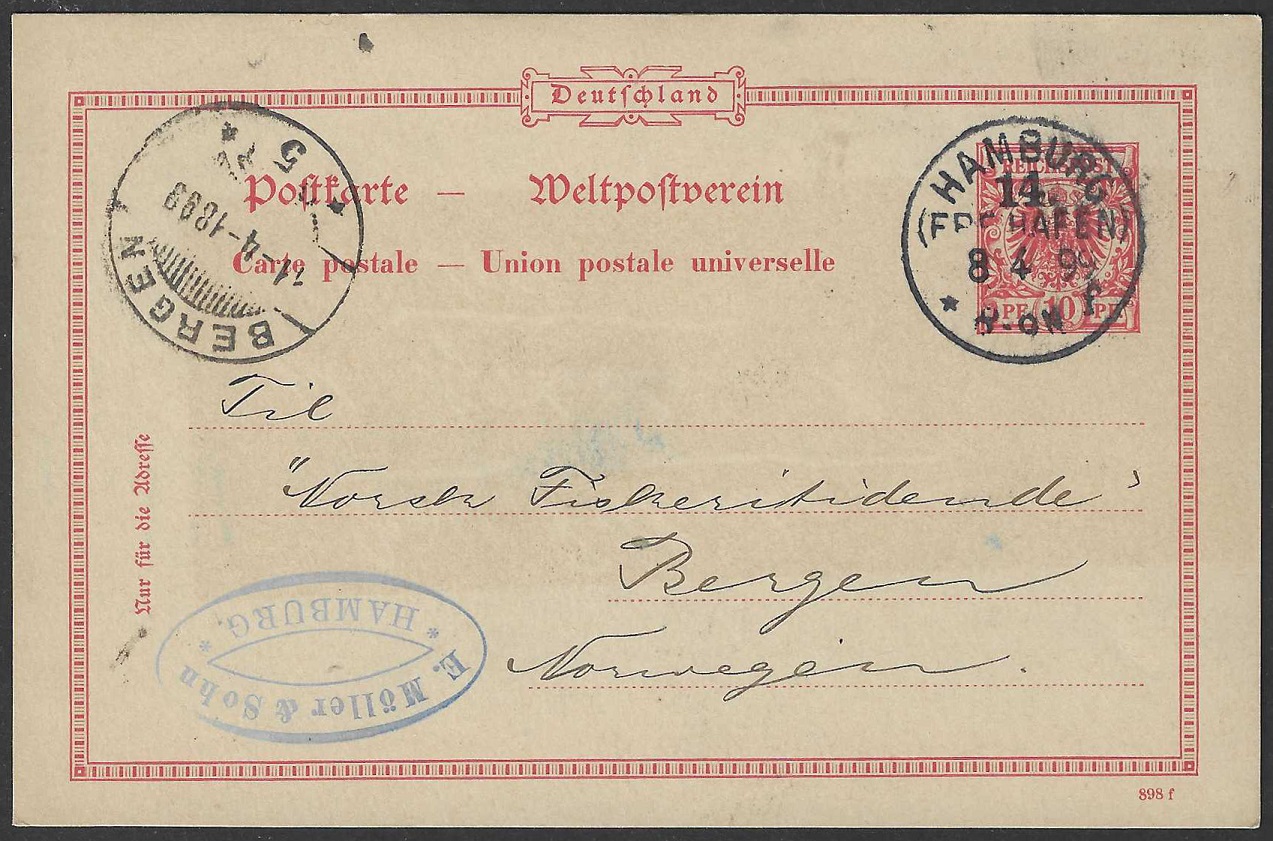 Deutschland
Postkarte — Weltpostverein
Carte postale — Union postale universelle
HAMBURG
14.
HAFEN)
8 4 99
8-9N
10
BERGEN
11-4-1899
5
Til
"Norsk Fiskeritidende"
Bergen
Norwegen.
Nur für die Adresse
E. Möller & Sohn
* HAMBURG. *
898 f